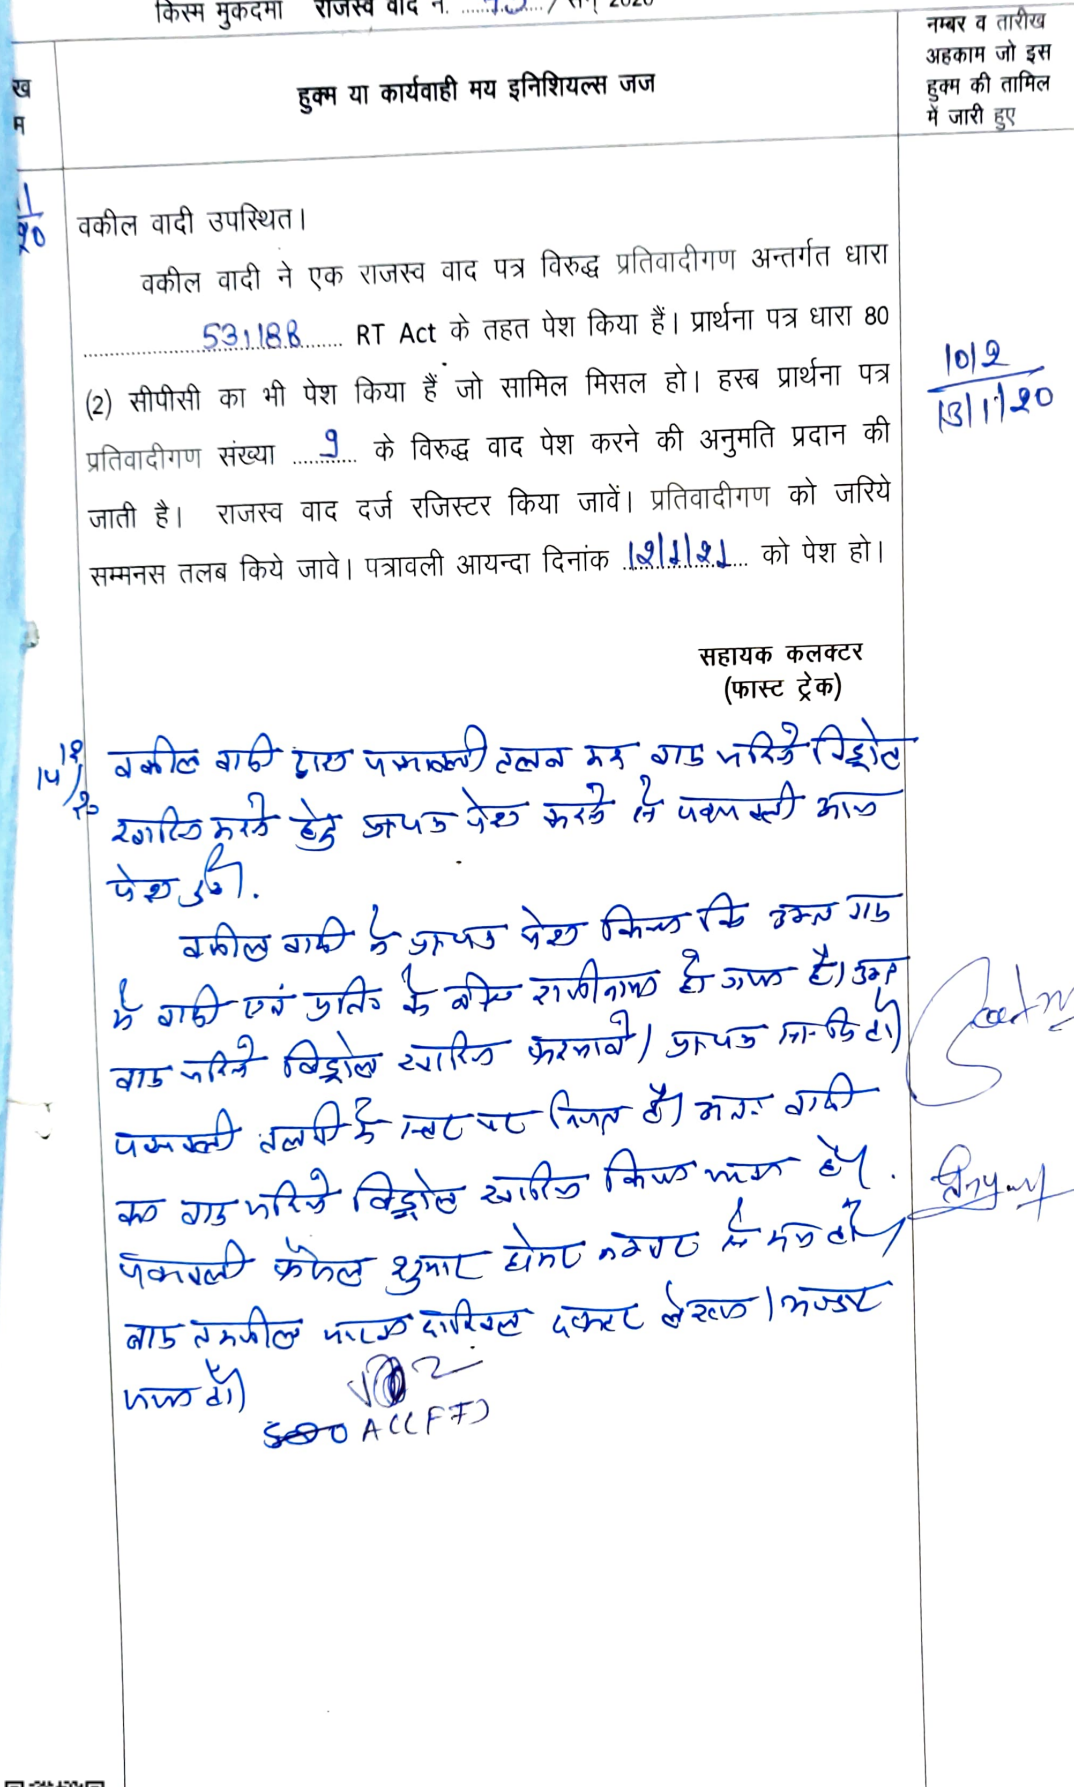 किस्म मुकदमा राजस्व वाद न. ............/ सन् 2020
हुक्म या कार्यवाही मय इनिशियल्स जज
नम्बर व तारीख
अहकाम जो इस
हुक्म की तामिल
में जारी हुए
वकील वादी उपस्थित।
वकील वादी ने एक राजस्व वाद पत्र विरुद्ध प्रतिवादीगण अन्तर्गत धारा
53,188 RT Act के तहत पेश किया हैं। प्रार्थना पत्र धारा 80
(2) सीपीसी का भी पेश किया हैं जो सामिल मिसल हो। हस्ब प्रार्थना पत्र
प्रतिवादीगण संख्या 9 के विरुद्ध वाद पेश करने की अनुमति प्रदान की
जाती है। राजस्व वाद दर्ज रजिस्टर किया जावें। प्रतिवादीगण को जरिये
सम्मनस तलब किये जावे। पत्रावली आयन्दा दिनांक 12/1/21 को पेश हो।
1012
13/1/20
सहायक कलक्टर
(फास्ट ट्रेक)
वकील वादी द्वारा पत्रावली तलब कर वाद जरिये विड्रोल
खारिज करने हेतु प्रा०पत्र पेश करने से पत्रावली आज
पेश हुई.
वकील वादी ने प्रा०पत्र पेश किया कि उक्त वाद
में वादी एवं प्रति० के बीच राजीनामा हो गया है। उक्त
वाद जरिये विड्रोल खारिज फरमावे। प्रा०पत्र शा०मि हो।
पत्रावली तलबी के स्टेज पर नियत है। अतः वादी
का वाद जरिये विड्रोल खारिज किया जाता है।
पत्रावली फैसल शुमार होकर नम्बर से कम हो।
बाद तकमील दाखिल दफ्तर
जावे हो।
AC(FT)